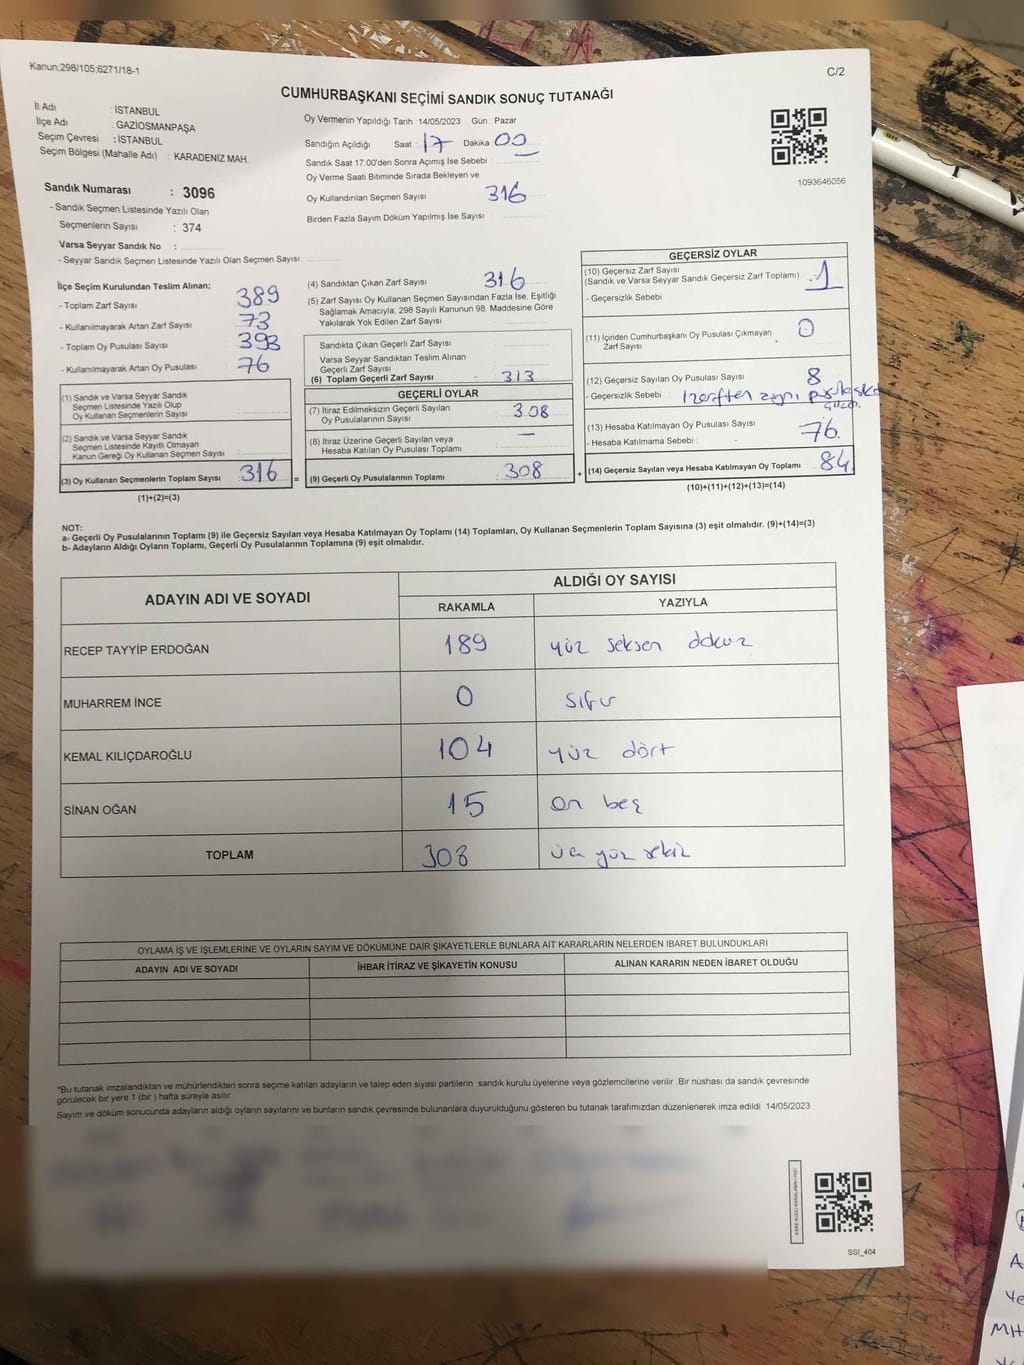 Kanun;298/105;6271/18-1
C/2
CUMHURBAŞKANI SEÇİMİ SANDIK SONUÇ TUTANAĞI
İl Adı : İSTANBUL
İlçe Adı : GAZİOSMANPAŞA
Seçim Çevresi : İSTANBUL
Seçim Bölgesi (Mahalle Adı) : KARADENİZ MAH.
Sandık Numarası : 3096
- Sandık Seçmen Listesinde Yazılı Olan
Seçmenlerin Sayısı : 374
Varsa Seyyar Sandık No :
- Seyyar Sandık Seçmen Listesinde Yazılı Olan Seçmen Sayısı:
Oy Vermenin Yapıldığı Tarih :14/05/2023 Gün : Pazar
Sandığın Açıldığı Saat : 17 Dakika : 00
Sandık Saat 17.00'den Sonra Açımış İse Sebebi :
Oy Verme Saati Bitiminde Sırada Bekleyen ve
Oy Kullandırılan Seçmen Sayısı 316
Birden Fazla Sayım Döküm Yapılmış İse Sayısı :
1093646056
İlçe Seçim Kurulundan Teslim Alınan;
- Toplam Zarf Sayısı 389
- Kullanılmayarak Artan Zarf Sayısı 73
- Toplam Oy Pusulası Sayısı 393
- Kullanılmayarak Artan Oy Pusulası 76
(1) Sandık ve Varsa Seyyar Sandık
Seçmen Listesinde Yazılı Olup
Oy Kullanan Seçmenlerin Sayısı
(2) Sandık ve Varsa Seyyar Sandık
Seçmen Listesinde Kayıtlı Olmayan
Kanun Gereği Oy Kullanan Seçmen Sayısı
(3) Oy Kullanan Seçmenlerin Toplam Sayısı 316 =
(1)+(2)=(3)
(4) Sandıktan Çıkan Zarf Sayısı 316
(5) Zarf Sayısı Oy Kullanan Seçmen Sayısından Fazla İse, Eşitliği
Sağlamak Amacıyla, 298 Sayılı Kanunun 98. Maddesine Göre
Yakılarak Yok Edilen Zarf Sayısı
Sandıkta Çıkan Geçerli Zarf Sayısı
Varsa Seyyar Sandıktan Teslim Alınan
Geçerli Zarf Sayısı
(6) Toplam Geçerli Zarf Sayısı 313
GEÇERLİ OYLAR
(7) İtiraz Edilmeksizin Geçerli Sayılan
Oy Pusulalarının Sayısı 308
(8) İtiraz Üzerine Geçerli Sayılan veya
Hesaba Katılan Oy Pusulası Toplamı —
(9) Geçerli Oy Pusulalarının Toplamı 308 +
GEÇERSİZ OYLAR
(10) Geçersiz Zarf Sayısı
(Sandık ve Varsa Seyyar Sandık Geçersiz Zarf Toplamı) 1
- Geçersizlik Sebebi :
(11) İçinden Cumhurbaşkanı Oy Pusulası Çıkmayan
Zarf Sayısı 0
(12) Geçersiz Sayılan Oy Pusulası Sayısı 8
- Geçersizlik Sebebi :
(13) Hesaba Katılmayan Oy Pusulası Sayısı 76.
- Hesaba Katılmama Sebebi :
(14) Geçersiz Sayılan veya Hesaba Katılmayan Oy Toplamı 84
(10)+(11)+(12)+(13)=(14)
NOT:
a- Geçerli Oy Pusulalarının Toplamı (9) ile Geçersiz Sayılan veya Hesaba Katılmayan Oy Toplamı (14) Toplamları, Oy Kullanan Seçmenlerin Toplam Sayısına (3) eşit olmalıdır. (9)+(14)=(3)
b- Adayların Aldığı Oyların Toplamı, Geçerli Oy Pusulalarının Toplamına (9) eşit olmalıdır.
ADAYIN ADI VE SOYADI ALDIĞI OY SAYISI
RAKAMLA YAZIYLA
RECEP TAYYİP ERDOĞAN 189 yüz seksen dokuz
MUHARREM İNCE 0 sıfır
KEMAL KILIÇDAROĞLU 104 yüz dört
SİNAN OĞAN 15 on beş
TOPLAM 308 üç yüz sekiz
OYLAMA İŞ VE İŞLEMLERİNE VE OYLARIN SAYIM VE DÖKÜMÜNE DAİR ŞİKAYETLERLE BUNLARA AİT KARARLARIN NELERDEN İBARET BULUNDUKLARI
ADAYIN ADI VE SOYADI İHBAR İTİRAZ VE ŞİKAYETİN KONUSU ALINAN KARARIN NEDEN İBARET OLDUĞU
*Bu tutanak imzalandıktan ve mühürlendikten sonra seçime katılan adayların ve talep eden siyasi partilerin sandık kurulu üyelerine veya gözlemcilerine verilir .Bir nüshası da sandık çevresinde
görülecek bir yere 1 (bir ) hafta süreyle asılır.
Sayım ve döküm sonucunda adayların aldığı oyların sayılarını ve bunların sandık çevresinde bulunanlara duyurulduğunu gösteren bu tutanak tarafımızdan düzenlenerek imza edildi. 14/05/2023
SSI_404
MH